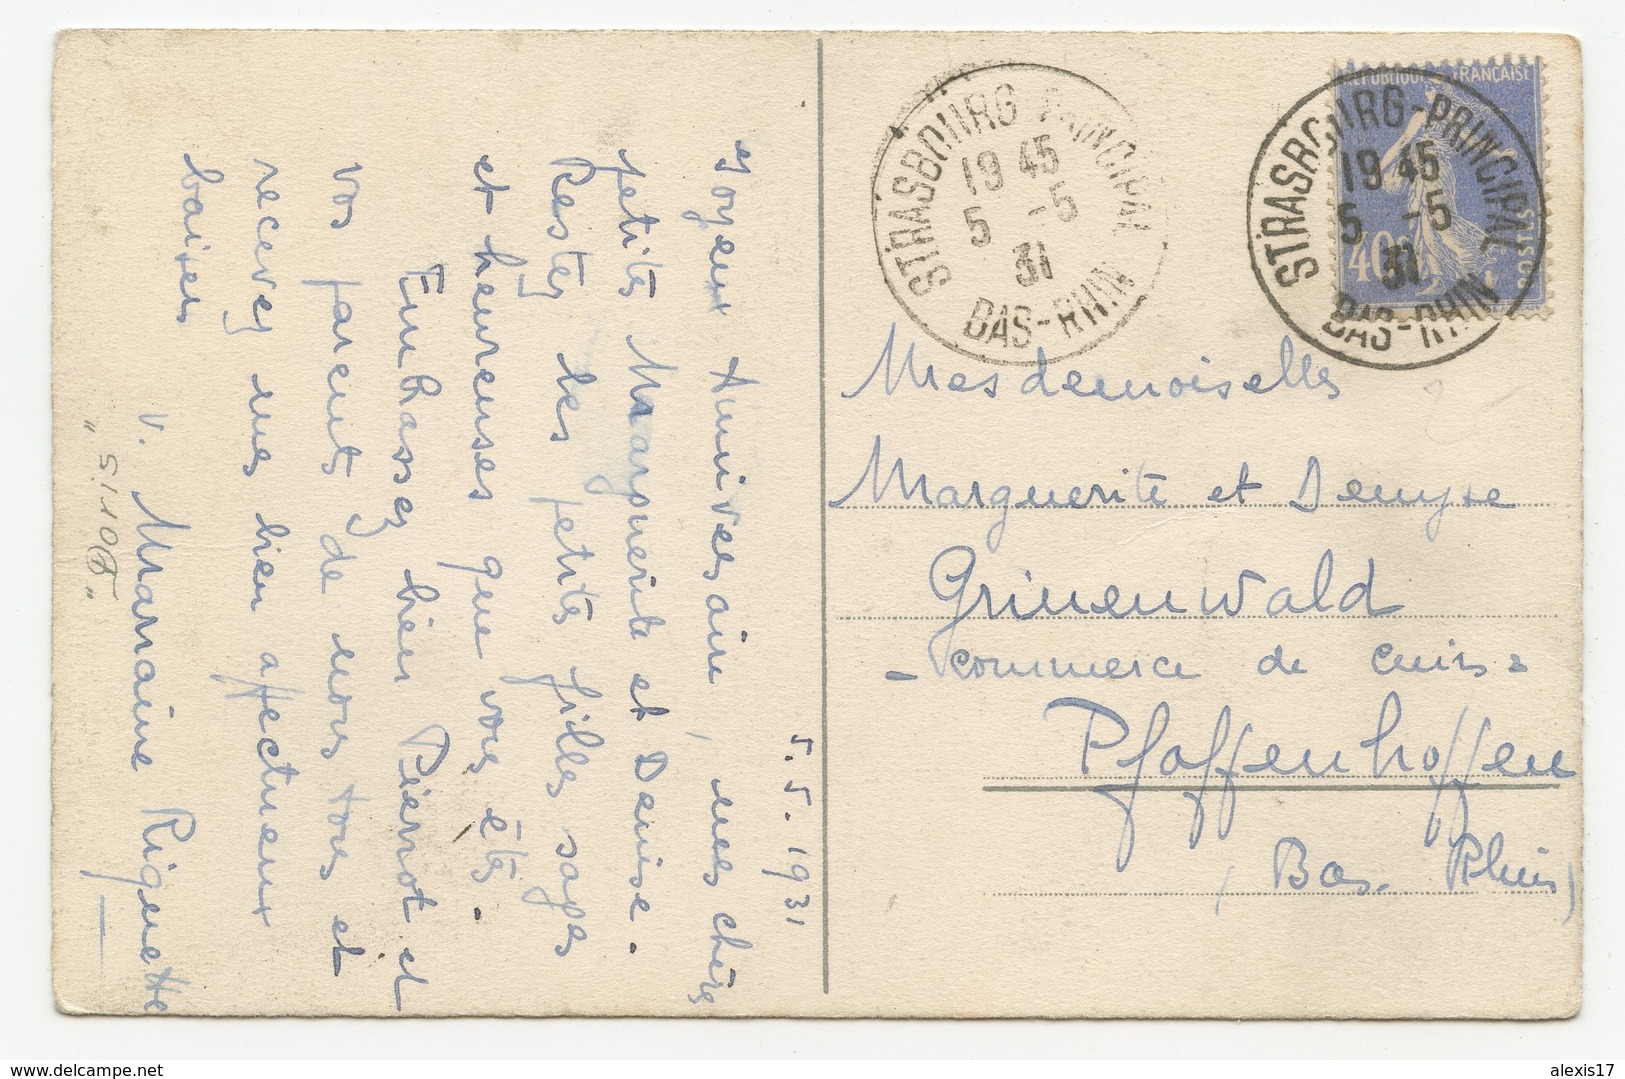 5.5.1931
Joyeux Anniversaire, mes chères
petites Marguerite et Denise.
Restez les petites filles sages
et heureuses que vous êtes.
Embrassez bien Pierrot et
vos parents de nous tous et
recevez mes bien affectueux
baisers
V. Marraine Riquette
"5.110 "
STRASBOURG PRINCIPAL
19 45
5 -5
31
BAS-RHIN
REPUBLIQUE FRANÇAISE
40
POSTES
STRASBOURG-PRINCIPAL
19 45
5 -5
31
BAS-RHIN
Mesdemoiselles
Marguerite et Denyse
Grinenwald
- commerce de cuirs =
Pfaffenhoffen
(Bas. Rhin)
alexis17